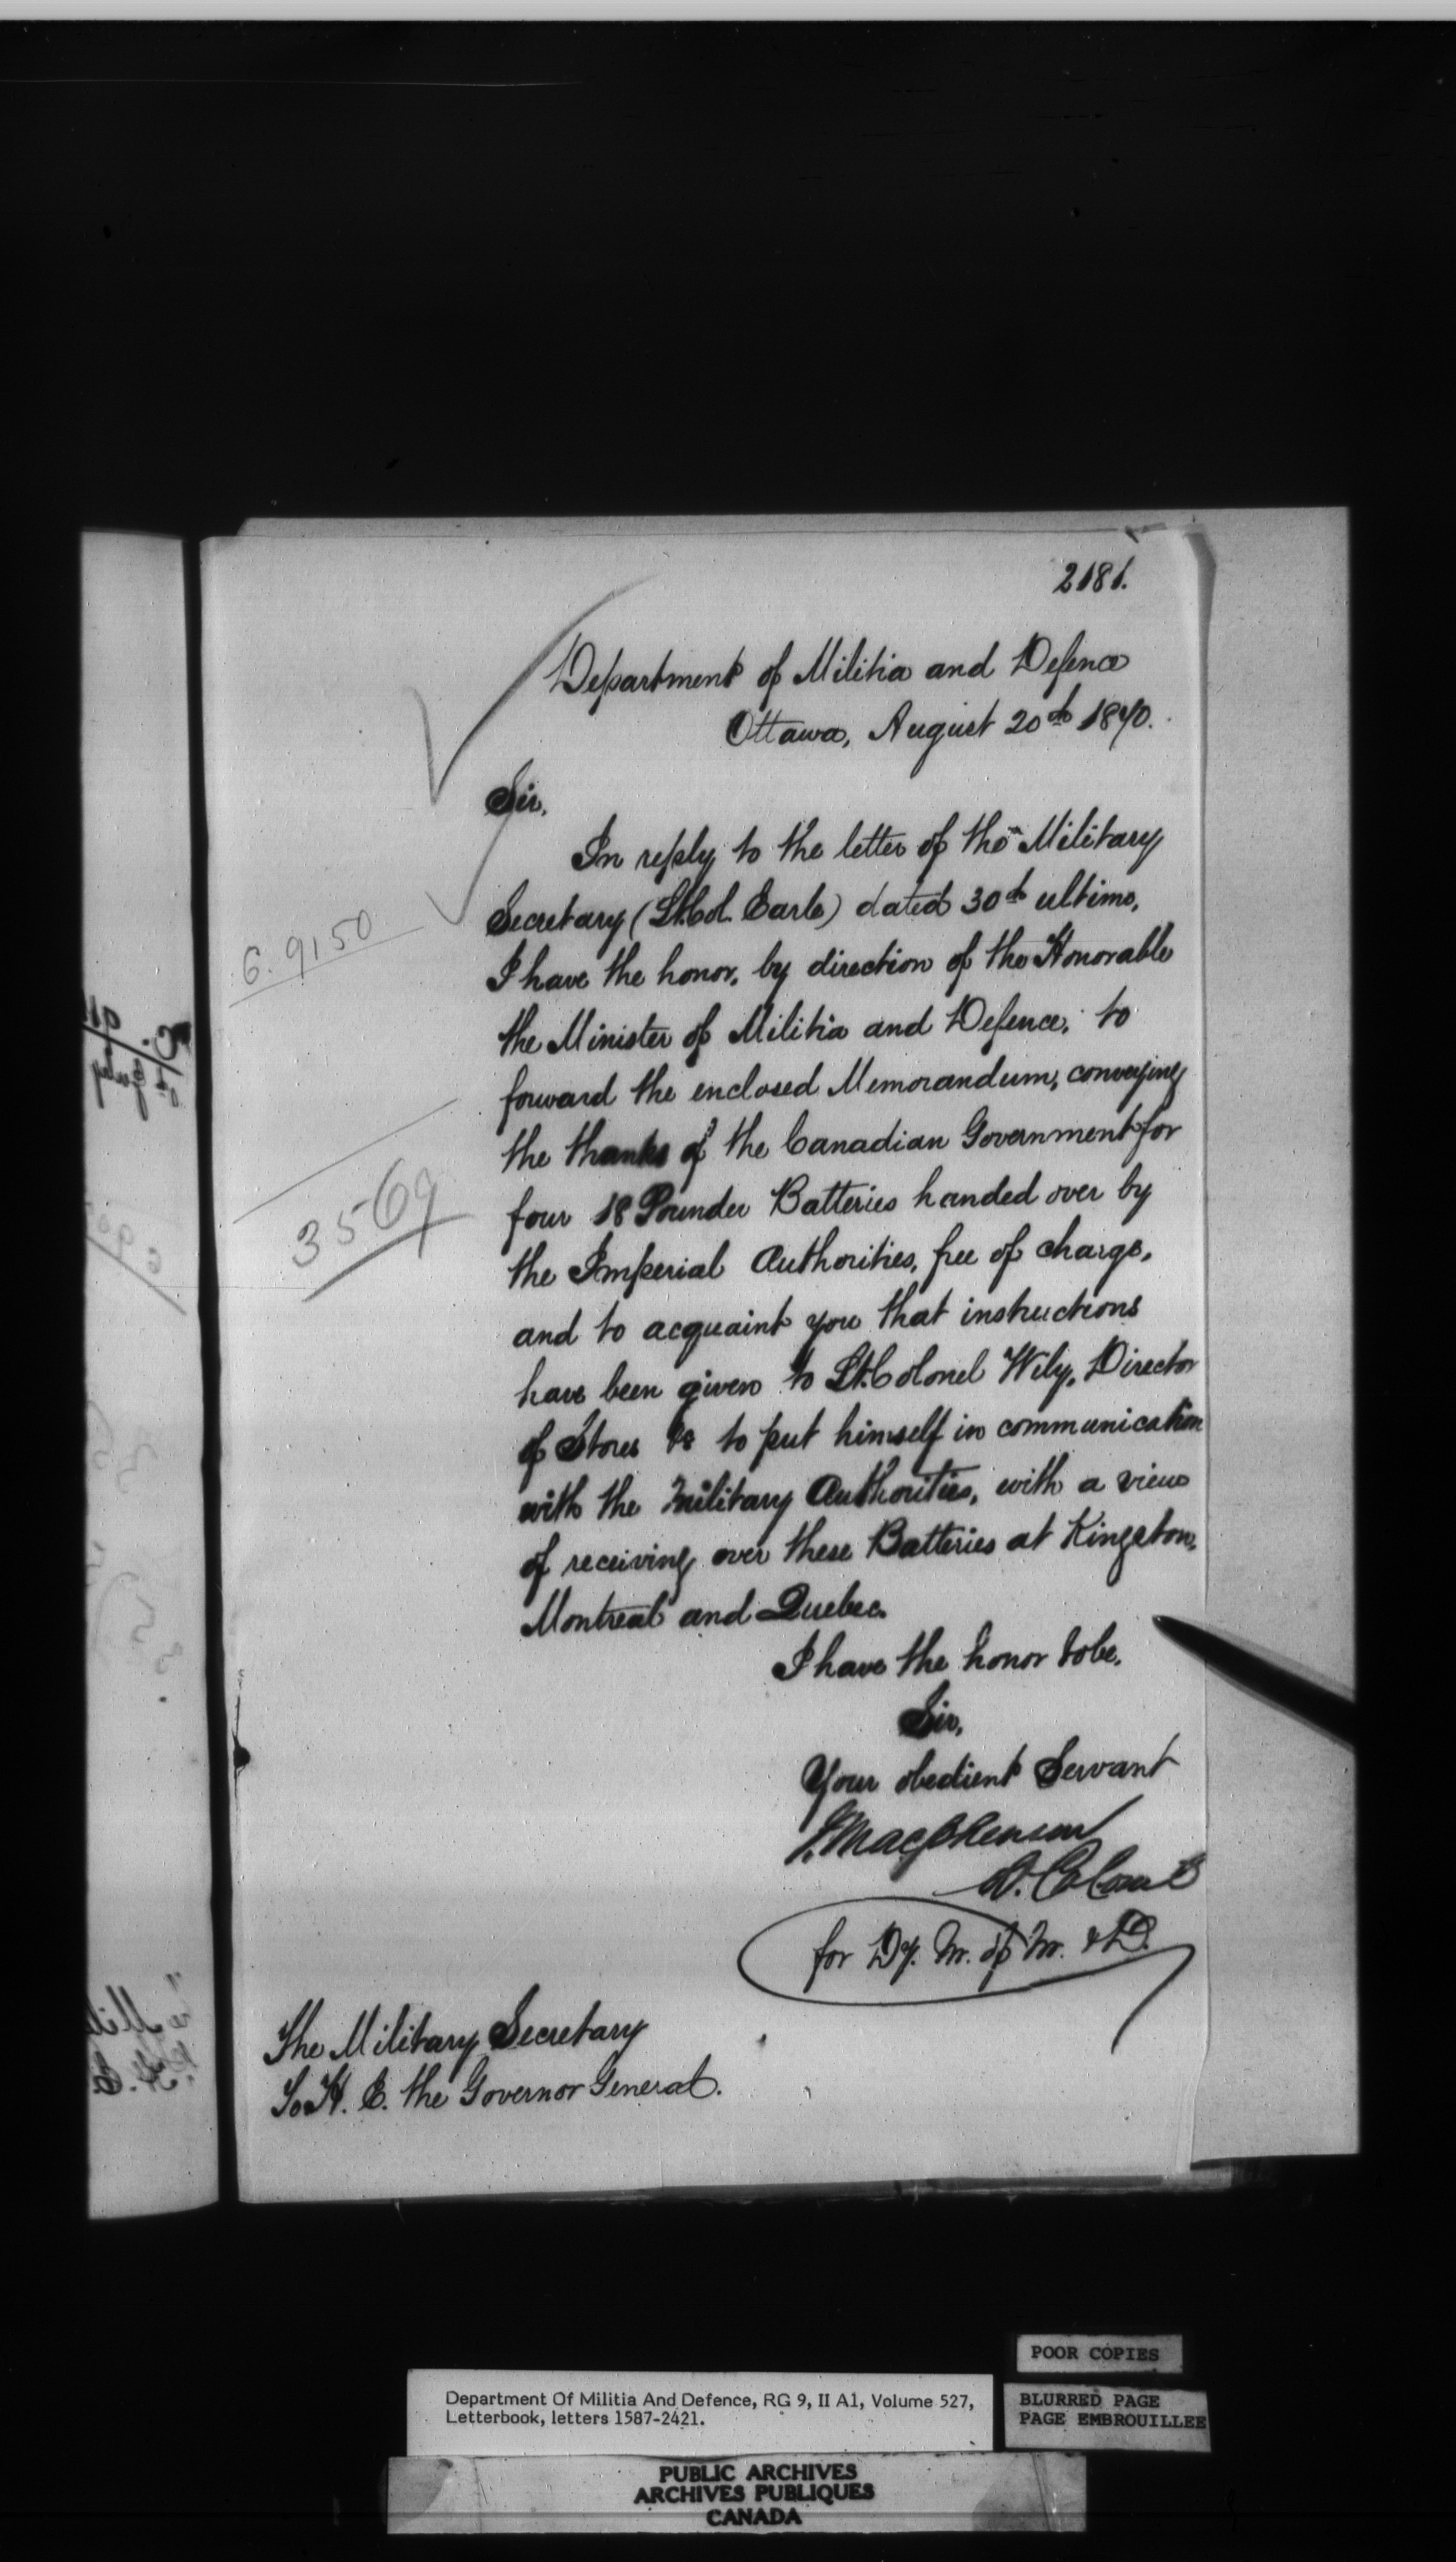 2181.
Department of Militia and Defence
Ottawa, August 20th 1870.
Sir,
In reply to the letter of the Military
Secretary (Lt. Col. Earle) dated 30th ultimo,
6. 9150
I have the honor, by direction of the Honorable
the Minister of Militia and Defence, to
forward the enclosed Memorandum, conveying
the thanks of the Canadian Government for
3569
four 18 Pounder Batteries handed over by
the Imperial Authorities, free of charge,
and to acquaint you that instructions
have been given to Lt. Colonel Wily, Director
of Stores &c to put himself in communication
with the Military Authorities, with a view
of receiving over these Batteries at Kingston,
Montreal and Quebec.
I have the honor to be,
Sir,
Your obedient Servant
Macpherson
Lt. Colonel
for Dy. M. of M. & D.
The Military Secretary
To H. E. the Governor General.
POOR COPIES
BLURRED PAGE
PAGE EMBROUILLEE
Department Of Militia And Defence, RG 9, II A1, Volume 527,
Letterbook, letters 1587-2421.
PUBLIC ARCHIVES
ARCHIVES PUBLIQUES
CANADA